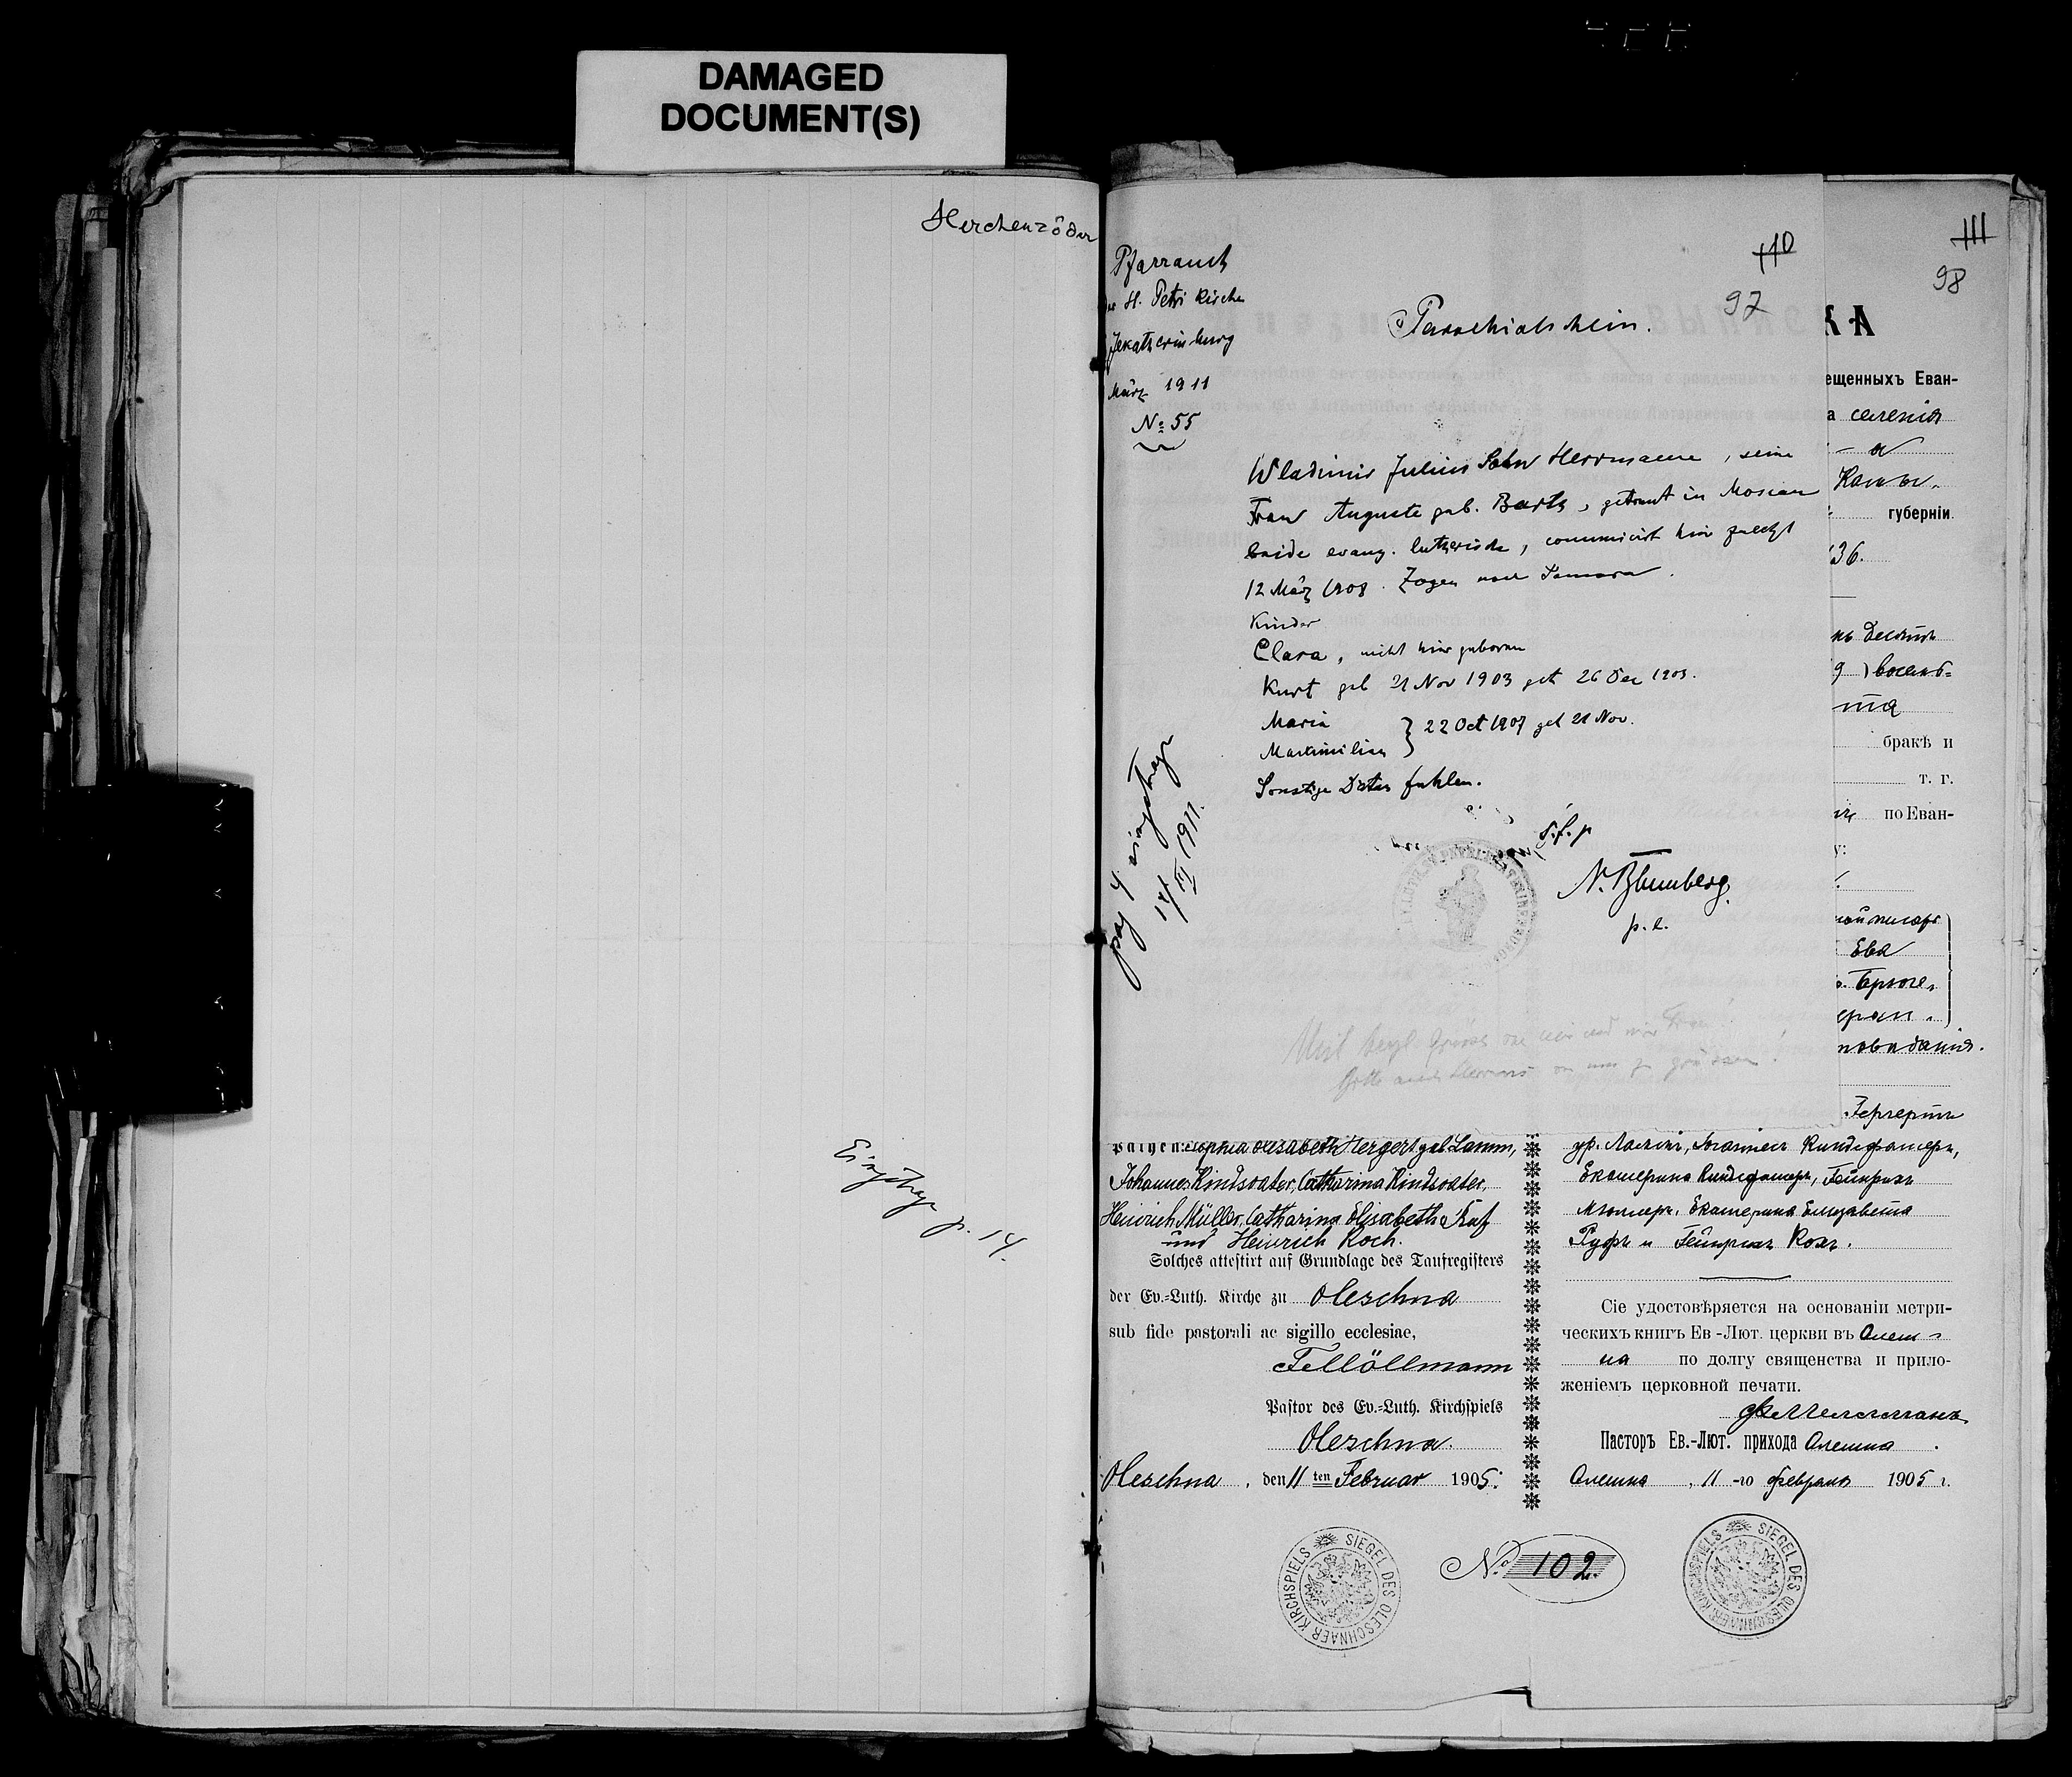 DAMAGED
DOCUMENT(S)
Herchenröder
Eingetrag. p. 14.
Pfarramt
der St. Petri Kirche
Jekaterinburg
März 1911
№ 55
110
97
Parochialschein.
Wladimir Julius Sohn Herrmann, seine
Frau Auguste geb. Barts, getraut in Moscau
beide evang. lutherische, communicirt hier zuletzt
12 März 1908. Zogen nach Samara.
Kinder
Clara, nicht hier geboren
Kurt geb 21 Nov 1903 get 26 Dec 1903.
Maria
Maximilian } 22 Oct 1907 get 21 Nov.
Sonstige Daten fehlen.
S. f. p
N. Blumberg.
p. l.
pag 4 eingetrag
14/III 1911.
111
98
КА
ещенныхъ Еван-
а селенія
губерніи
36.
9 ) восемь=
та
бракѣ и
т. г.
по Еван-
у:
Ева
повѣданія.
Гергертъ
Pathen: Sophia Elisabeth Hergert geb. Lamm,
Johannes Kindsvater, Catharina Kindsvater,
Heinrich Müller, Catharina Elisabeth Ruf
und Heinrich Koch.
Solches attestirt auf Grundlage des Taufregisters
der Ev.=Luth. Kirche zu Oleschna
sub fide pastorali ac sigillo ecclesiae,
Pastor des Ev.=Luth. Kirchspiels
Oleschna.
Oleschna, den 11 ten Februar 1905.
SIEGEL DES OLESCHNAER KIRCHSPIELS
№ 102
ур. Ламмъ, Іоаннесъ Киндсфатеръ,
Екатерина Киндсфатеръ, Гейнрихъ
Мюллеръ, Екатерина Елизавета
Руфъ и Гейнрихъ Кохъ.
Сіе удостовѣряется на основаніи метри-
ческихъ книгъ Ев-Лют. церкви въ Олеш-
на по долгу священства и прило-
женіемъ церковной печати.
Пасторъ Ев.-Лют. прихода Олешна.
Олешна, 11-го февраля 1905 г.
SIEGEL DES OLESCHNAER KIRCHSPIELS